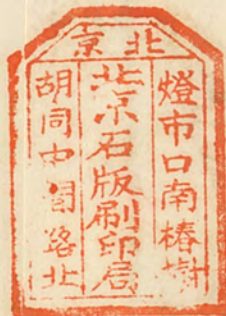 北京
燈市口南椿樹
北京石版刷印局
胡同中間路北